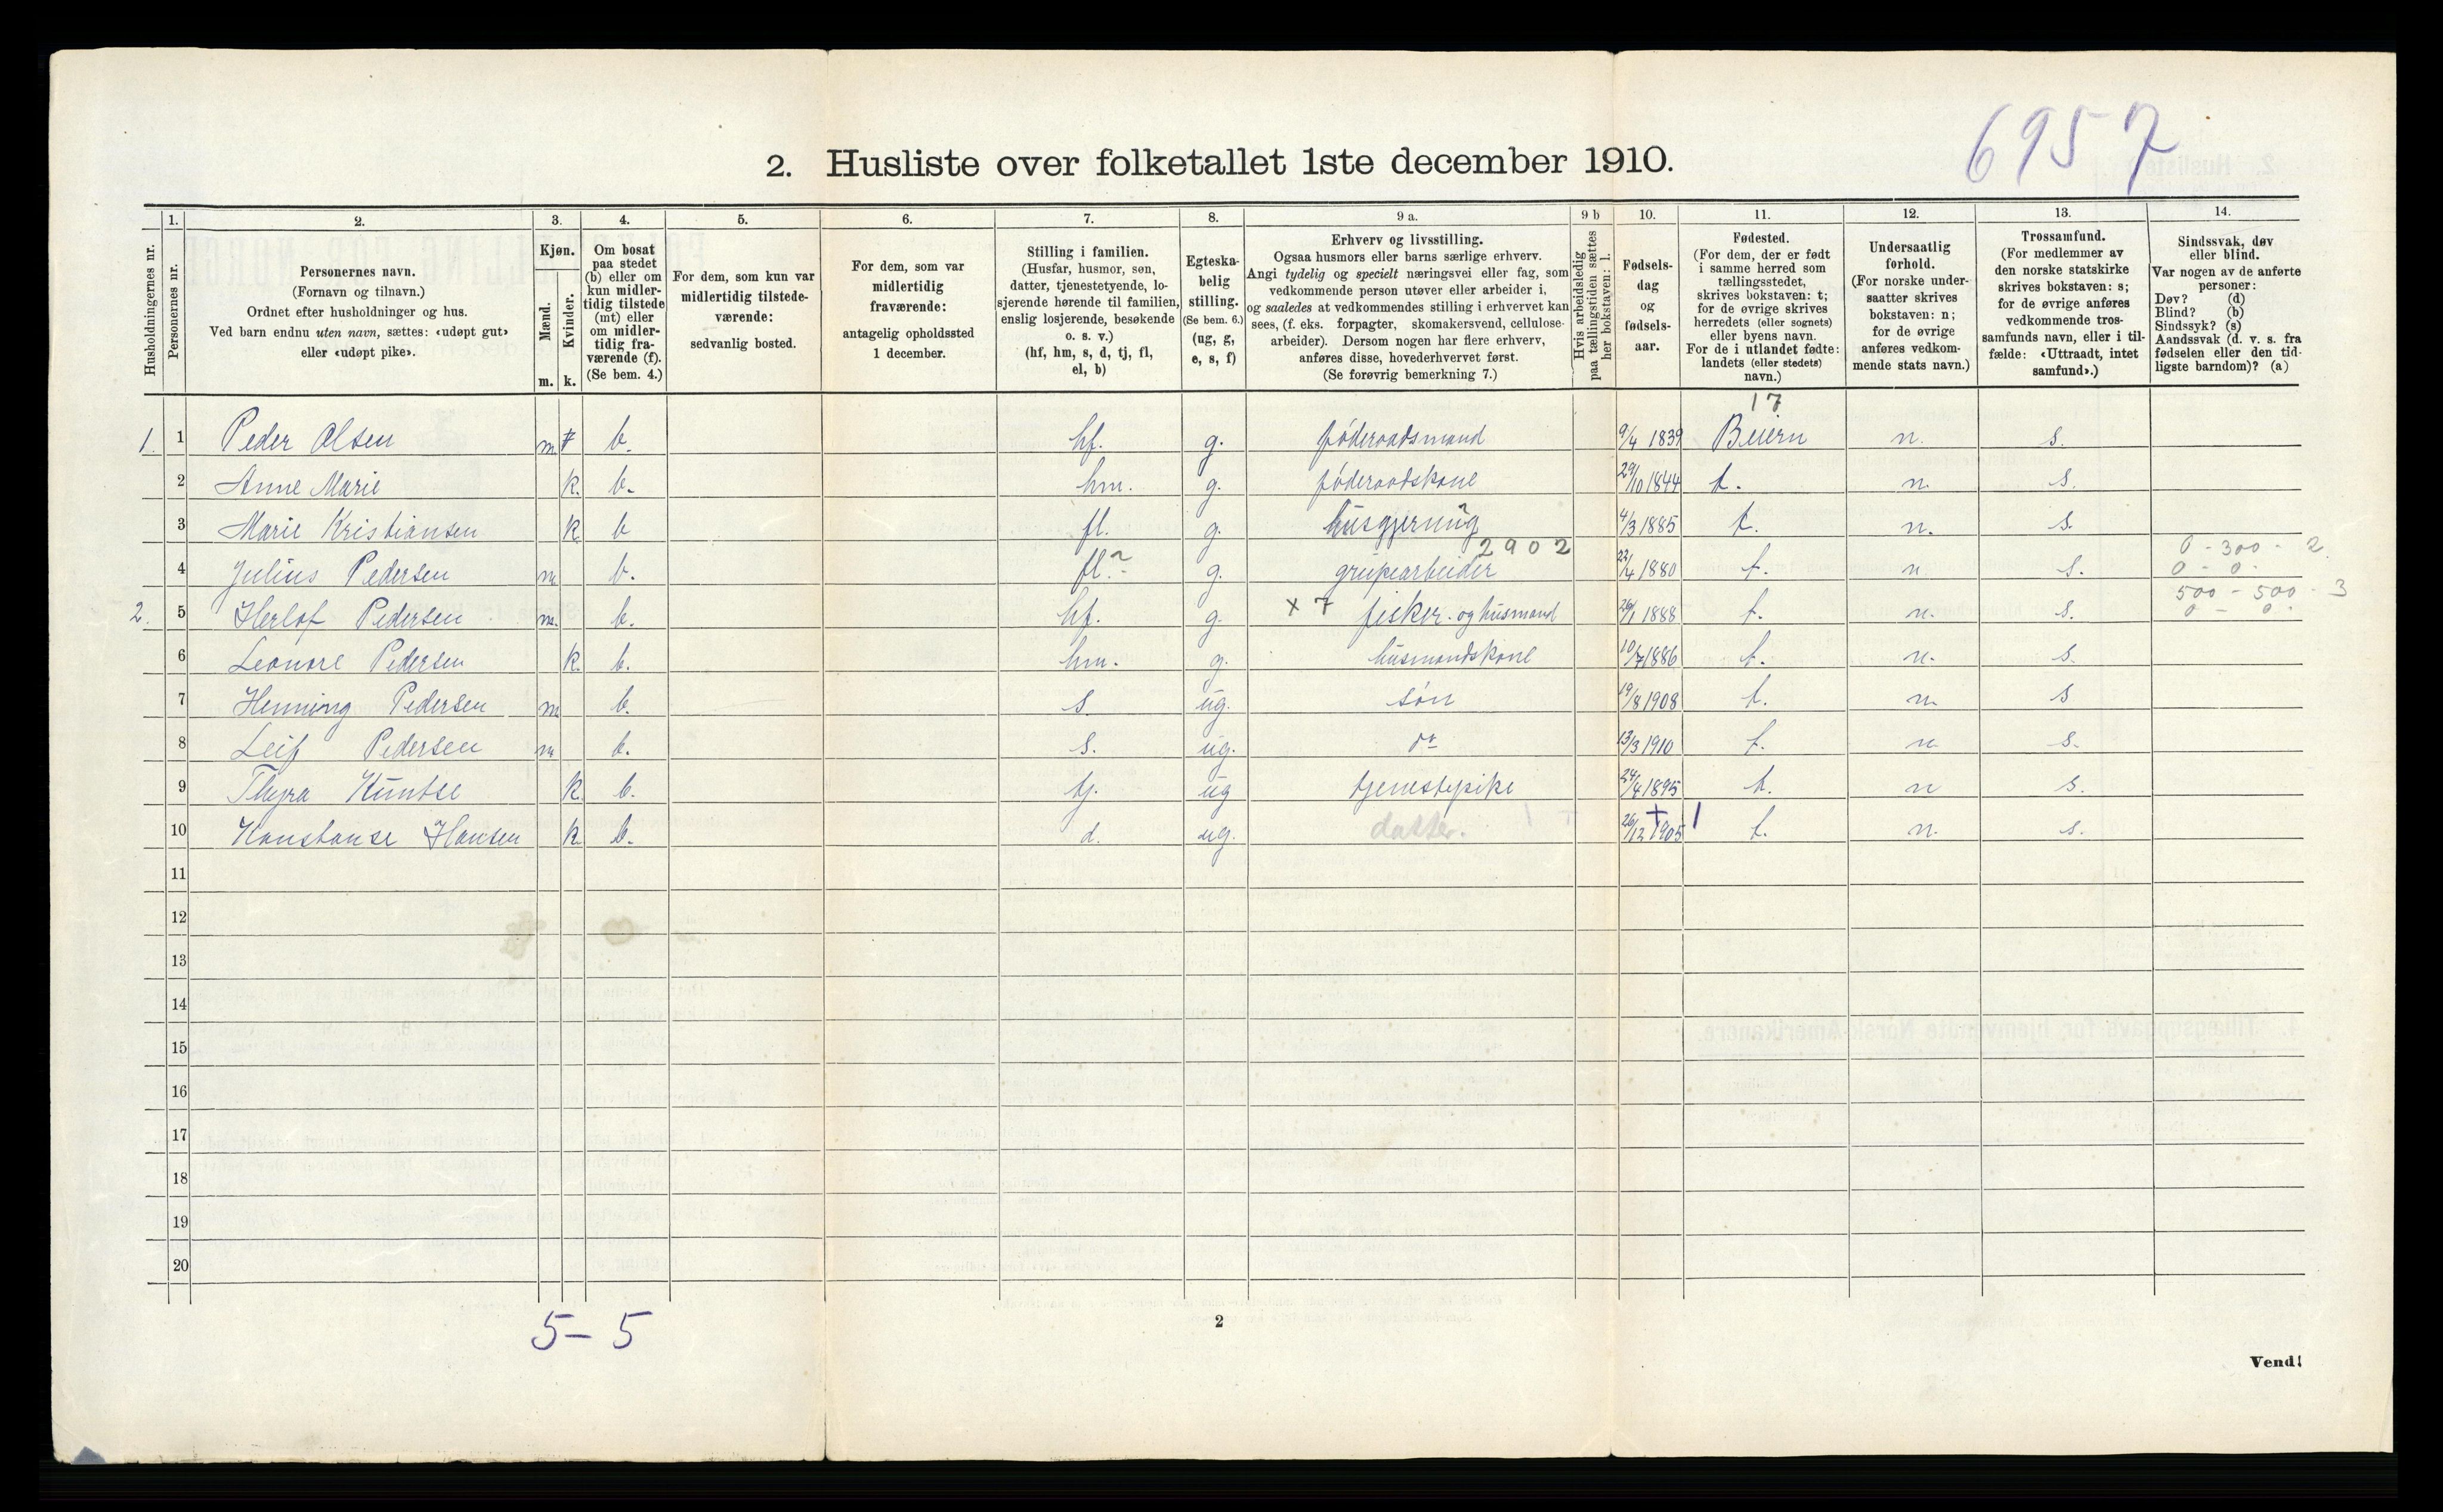 6957
2. Husliste over folketallet 1ste december 1910.
Husholdningernes nr.
1. Personernes nr.
2. Personernes navn. (Fornavn og tilnavn.) Ordnet efter husholdninger og hus. Ved barn endnu uten navn, sættes: «udøpt gut» eller «udøpt pike».
3. Kjøn. Mænd. m. Kvinder. k.
4. Om bosat paa stedet (b) eller om kun midlertidig tilstede (mt) eller om midlertidig fraværende (f). (Se bem. 4.)
5. For dem, som kun var midlertidig tilstedeværende: sedvanlig bosted.
6. For dem, som var midlertidig fraværende: antagelig opholdssted 1 december.
7. Stilling i familien. (Husfar, husmor, søn, datter, tjenestetyende, losjerende hørende til familien, enslig losjerende, besøkende o. s. v.) (hf, hm, s, d, tj, fl, el, b)
8. Egteskabelig stilling. (Se bem. 6.) (ug, g, e, s, f)
9 a. Erhverv og livsstilling. Ogsaa husmors eller barns særlige erhverv. Angi tydelig og specielt næringsvei eller fag, som vedkommende person utøver eller arbeider i, og saaledes at vedkommendes stilling i erhvervet kan sees, (f. eks. forpagter, skomakersvend, cellulosearbeider). Dersom nogen har flere erhverv, anføres disse, hovederhvervet først. (Se forøvrig bemerkning 7.)
9 b Hvis arbeidsledig paa tællingstiden sættes her bokstaven: l.
10. Fødselsdag og fødselsaar.
11. Fødested. (For dem, der er født i samme herred som tællingsstedet, skrives bokstaven: t; for de øvrige skrives herredets (eller sognets) eller byens navn. For de i utlandet fødte: landets (eller stedets) navn.)
12. Undersaatlig forhold. (For norske undersaatter skrives bokstaven: n; for de øvrige anføres vedkommende stats navn.)
13. Trossamfund. (For medlemmer av den norske statskirke skrives bokstaven: s; for de øvrige anføres vedkommende trossamfunds navn, eller i tilfælde: «Uttraadt, intet samfund».)
14. Sindssvak, døv eller blind. Var nogen av de anførte personer: Døv? (d) Blind? (b) Sindssyk? (s) Aandssvak (d. v. s. fra fødselen eller den tidligste barndom)? (a)
17
1. 1 Peder Olsen m b. hf. g. føderaadsmand 9/4 1839 Beiern n. s.
2 Anne Marie k. b. hm. g. føderaadskone 29/10 1844 t. n. s.
3 Marie Kristiansen k b fl. g. husgjerning 4/3 1885 t. n. s.
2902 0 - 300 - 2.
4 Julius Pedersen m b. fl. g. grubearbeider 22/4 1880 t. n s. 0 - 0.
500 - 500 - 3
2. 5 Herlof Pedersen m. b. hf. g. x 7 fisker. og husmand 26/1 1888 t. n. s. 0 - 0.
6 Leonore Pedersen k. b. hm. g. husmandskone 10/7 1886 t. n. s.
7 Henning Pedersen m b. s. ug. søn 19/8 1908 t. n s
8 Leif Pedersen m b. s. ug. do 13/3 1910 t. n s.
9 Thyra Kuntse k. b. tj. ug tjenestepike 24/4 1895 t. n s.
10 Konstanse Hansen k. b. d. ug. datter. 26/12 1905 t. n. s.
11
12
13
14
15
16
17
18
19
20
5 - 5
2
Vend!